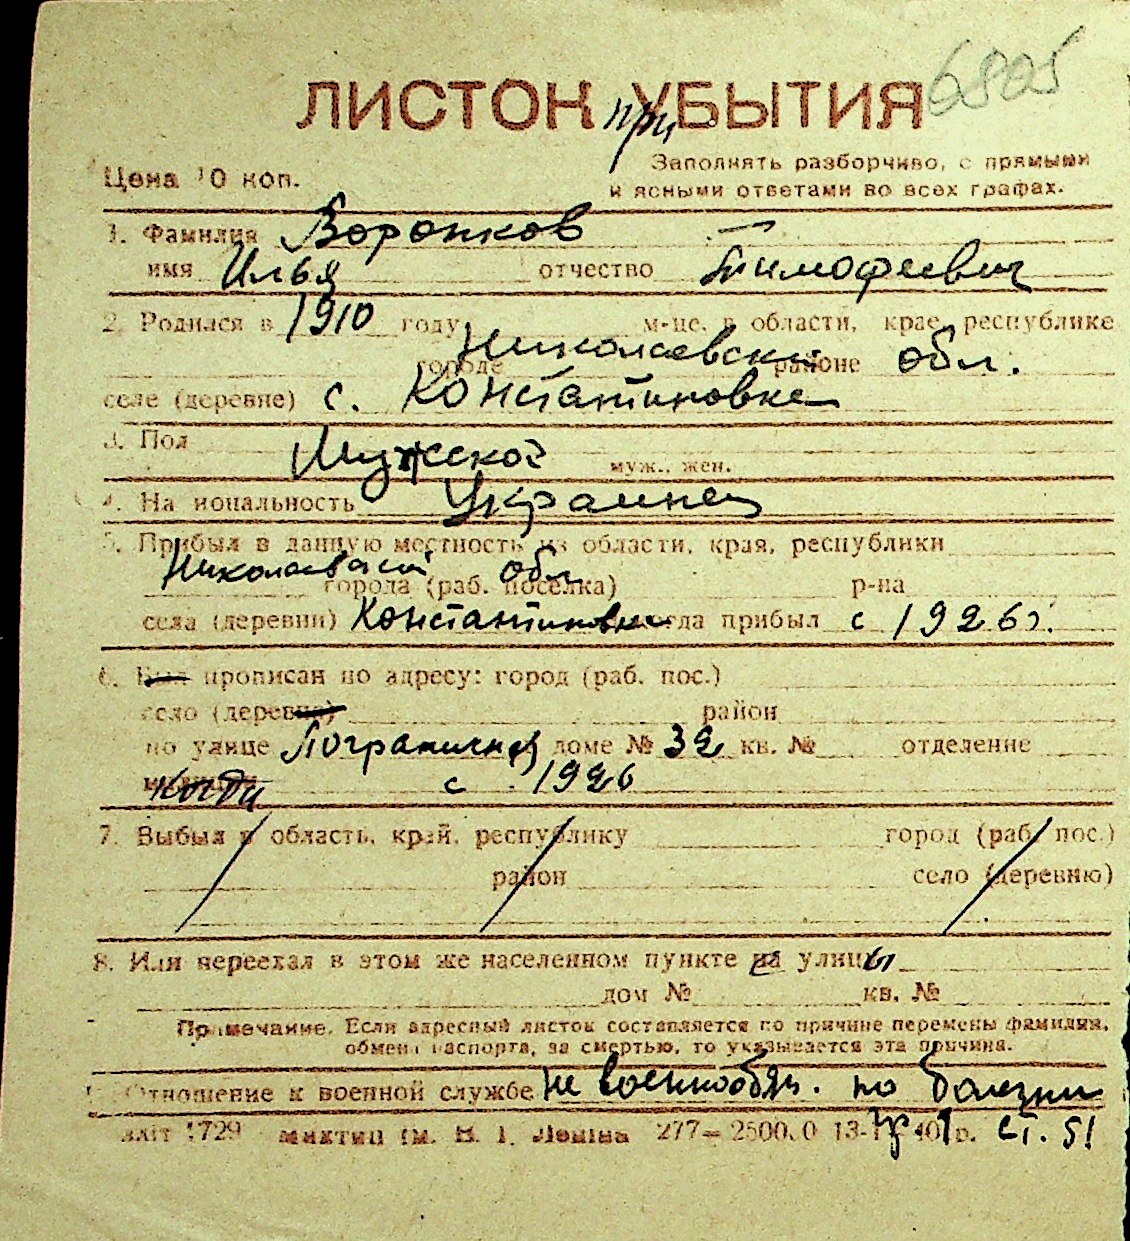 6805
ЛИСТОК при УБЫТИЯ
Цена 10 коп.
Заполнять разборчиво, с прямыми
и ясными ответами во всех графах.
1. Фамилия Воронков
имя Илья отчество Тимофеевич
2. Родился в 1910 году м-це, в области, крае, республике
Николаевской обл.
городе районе
селе (деревне) с. Константиновке
3. Пол Мужской муж., жен.
4. Национальность Украинец
5. Прибыл в данную местность из области, края, республики
Николаевской обл.
города (раб. поселка) р-на
села (деревни) Константиновка когда прибыл с 1926 г.
6. Был прописан по адресу: город (раб. пос.)
село (деревня) район
по улице Пограничная доме № 32 кв. № отделение
милиции когда с 1926
7. Выбыл в область, край, республику город (раб. пос.)
район село (деревню)
8. Или переехал в этом же населенном пункте на улицы
дом № кв. №
Примечание. Если адресный листок составляется по причине перемены фамилии,
обмена паспорта, за смертью, то указывается эта причина.
Отношение к военной службе не военнообяз. по болезни
1729 ім. В. І. Леніна 277— 13- ст. 51